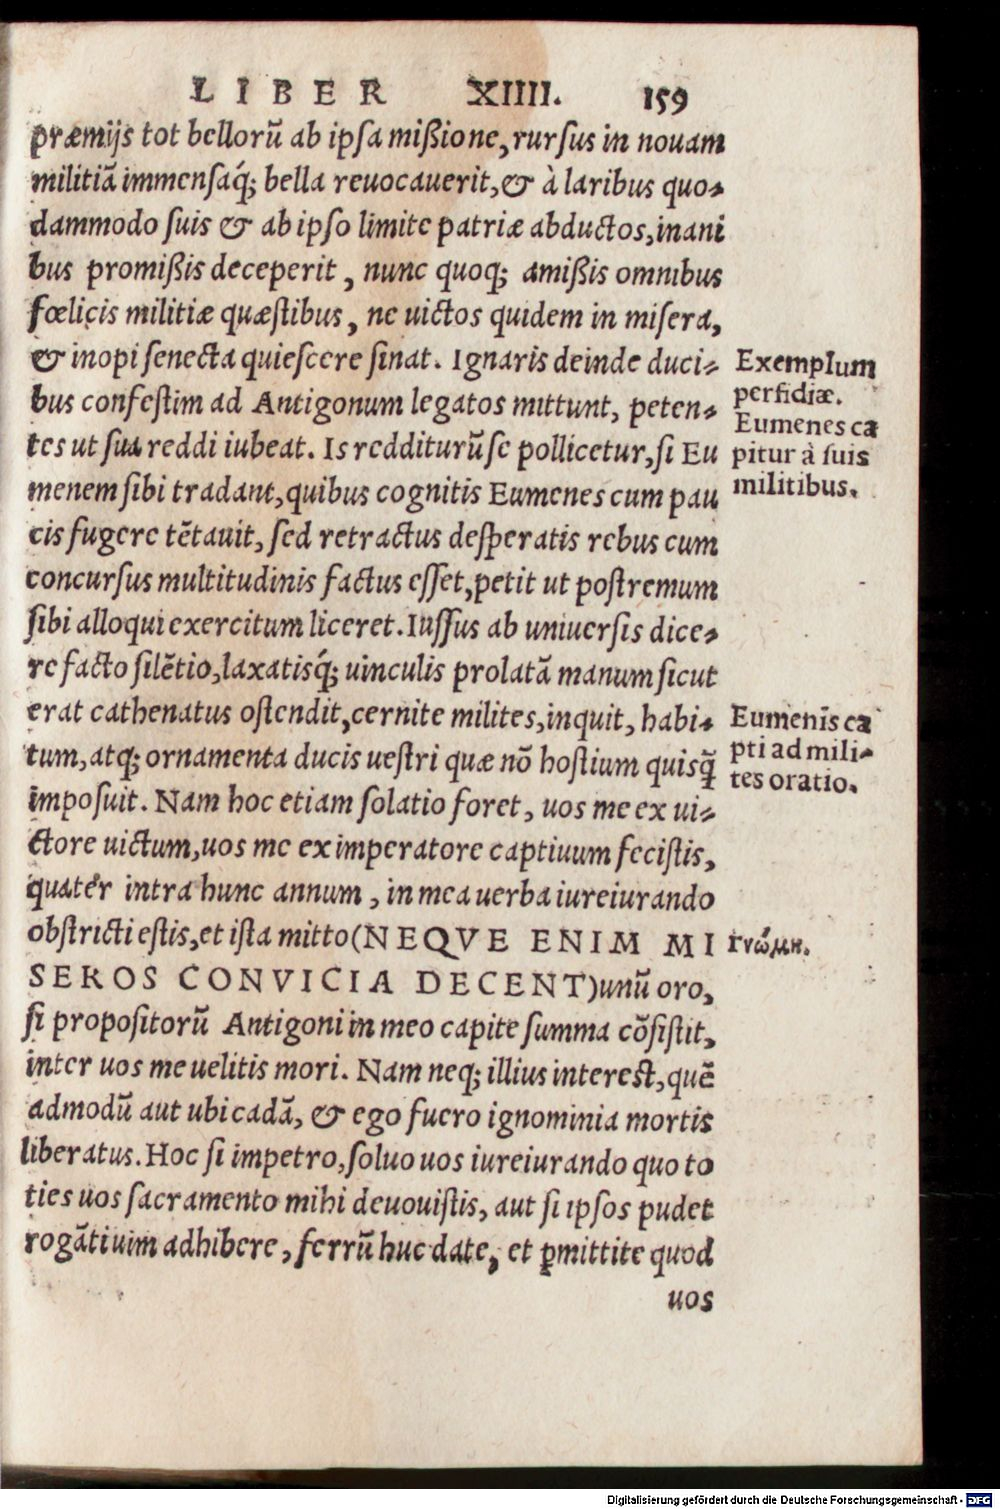 LIBER XIIII. 159
præmijs tot bellorũ ab ipsa mißione, rursus in nouam
militiã immensaq́; bella reuocauerit, & à laribus quo-
dammodo suis & ab ipso limite patriæ abductos, inani
bus promißis deceperit, nunc quoq; amißis omnibus
fœlicis militiæ quæstibus, ne uictos quidem in misera,
& inopi senecta quiescere sinat. Ignaris deinde duci-
bus confestim ad Antigonum legatos mittunt, peten-
tes ut sua reddi iubeat. Is redditurũ se pollicetur, si Eu
menem sibi tradant, quibus cognitis Eumenes cum pau
cis fugere tẽtauit, sed retractus desperatis rebus cum
concursus multitudinis factus esset, petit ut postremum
sibi alloqui exercitum liceret. Iussus ab uniuersis dice-
re facto silẽtio, laxatisq́; uinculis prolatã manum sicut
erat cathenatus ostendit, cernite milites, inquit, habi-
tum, atq; ornamenta ducis uestri quæ nõ hostium quisq̃
imposuit. Nam hoc etiam solatio foret, uos me ex ui-
ctore uictum, uos me ex imperatore captiuum fecistis,
quater intra hunc annum, in mea uerba iureiurando
obstricti estis, et ista mitto (NEQVE ENIM MI
SEROS CONVICIA DECENT) unũ oro,
si propositorũ Antigoni in meo capite summa cõsistit,
inter uos me uelitis mori. Nam neq; illius interest, quẽ
admodũ aut ubi cadã, & ego fuero ignominia mortis
liberatus. Hoc si impetro, soluo uos iureiurando quo to
ties uos sacramento mihi deuouistis, aut si ipsos pudet
rogãti uim adhibere, ferrũ huc date, et ꝑmittite quod
uos
Exemplum
perfidiæ.
Eumenes ca
pitur à suis
militibus.
Eumenis ca
pti ad mili-
tes oratio.
Γνώμη.
Digitalisierung gefördert durch die Deutsche Forschungsgemeinschaft - DFG